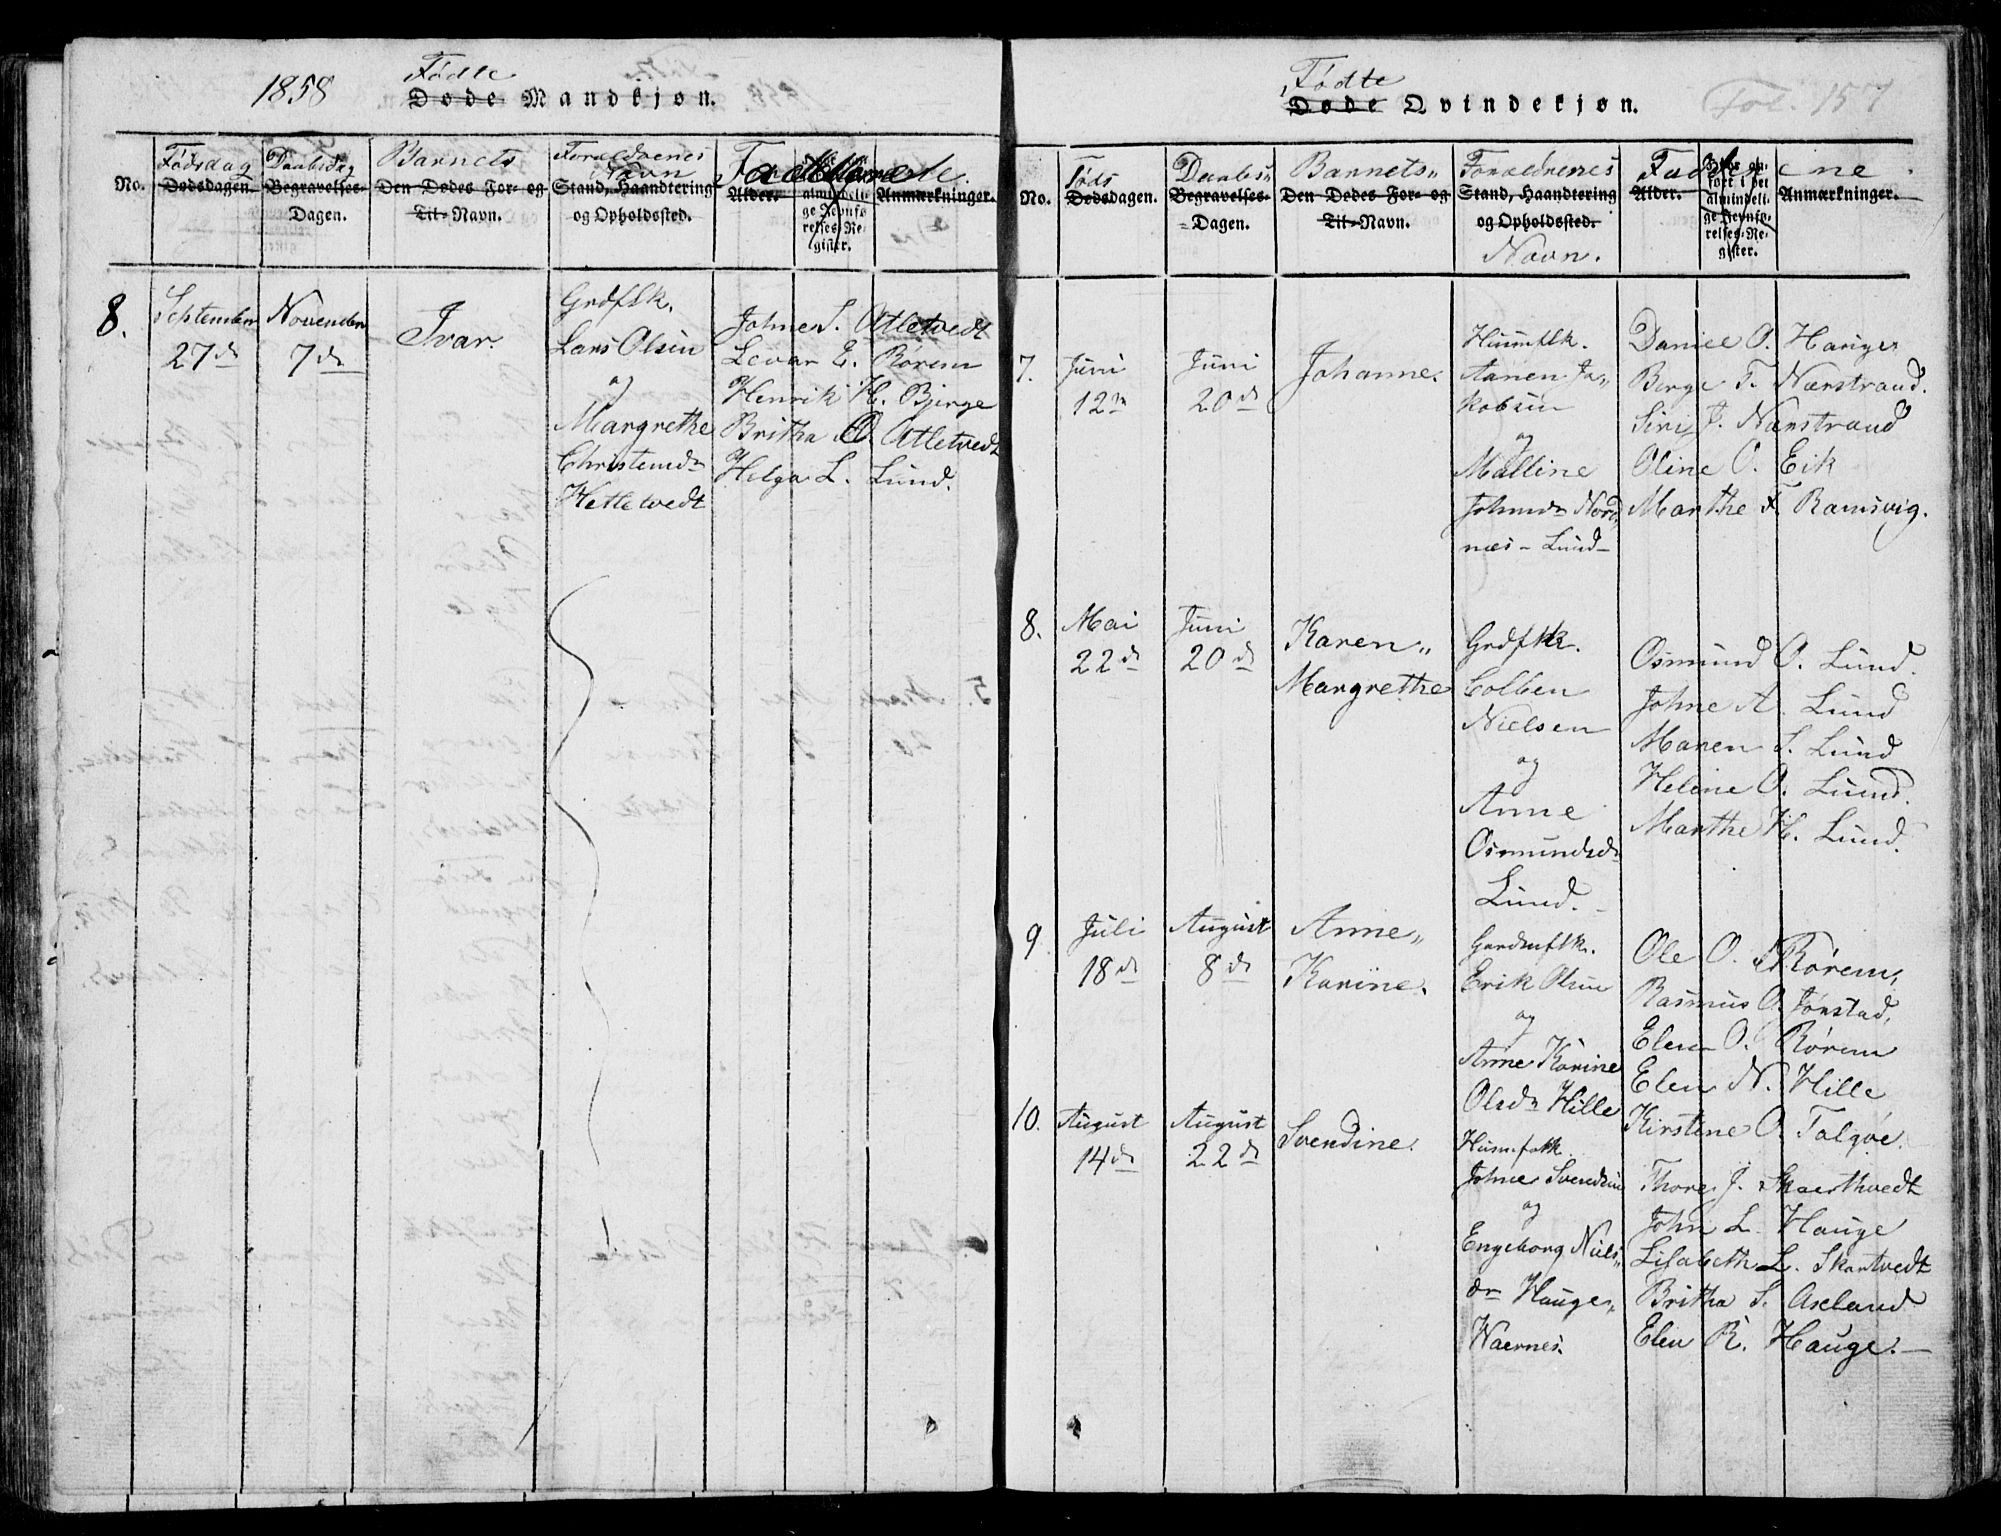 1858
Fødte
Døde Mandkjøn.
No.
Fødsdag
Dødsdagen.
Daabsdag
Begravelses-
Dagen.
Barnets
Den Dødes For- og
Til-Navn.
Forældrenes
Navn
Stand, Haandtering
og Opholdssted.
Alder.
almindeli-
ge Jevnfø-
relses-Re-
gister.
Anmærkninger.
8.
September
27de
November
7de
Ivar.
Grdflk.
Lars Olsen
og
Margrethe
Christensdr
Hetletvedt
Johne S. Atletvedt
Levar E. Rørem
Henrik H. Bjerge
Britha O. Atletvedt
Helga L. Lund.
Fødte
Døde Qvindekjøn.
Fol. 157
No.
Føds
Dødsdagen.
Daabs-
Begravelses-
Dagen.
Barnets
Den Dødes For- og
Til-Navn.
Forældrenes
Stand, Haandtering
og Opholdssted.
Navn.
Fadderne
Alder.
Hvor an-
ført i det
almindeli-
ge Jevnfø-
relses-Re-
gister.
Anmærkninger.
7.
Juni
12te
Juni
20de
Johanne.
Huusflk.
Aanen Ja-
kobsen
og
Malline
Johnsdr Nord-
næs - Lund -
Daniel O. Hauge
Berge T. Nærstrand.
Siri J. Nærstrand
Oline O. Eik
Marthe T. Ramsvig.
8.
Mai
22de
Juni
20de
Karen
Margrethe
Grdflk.
Colben
Nielsen
og
Anne
Osmundsdr
Lund.
Osmund O. Lund.
Johne A. Lund
Maren S. Lund
Heline O. Lund.
Marthe H. Lund.
9
Juli
18de
August
8de
Anne
Karine.
Gardmflk.
Erik Olsen
og
Anne Karine
Olsdr Hille
Ole O. Rørem,
Rasmus O. Jørstad,
Elen O. Rørem
Elen N. Hille
Kirstine O. Talgøe.
10.
August
14de
August
22de
Svendine.
Huusfolk
Johne Svendsen
og
Engeborg Niels-
dr Hauge
Waernes.
Thore J. Skaerthvedt
John L. Hauge
Lisabeth L. Skartvedt
Britha S. Axeland
Elen R. Hauge.